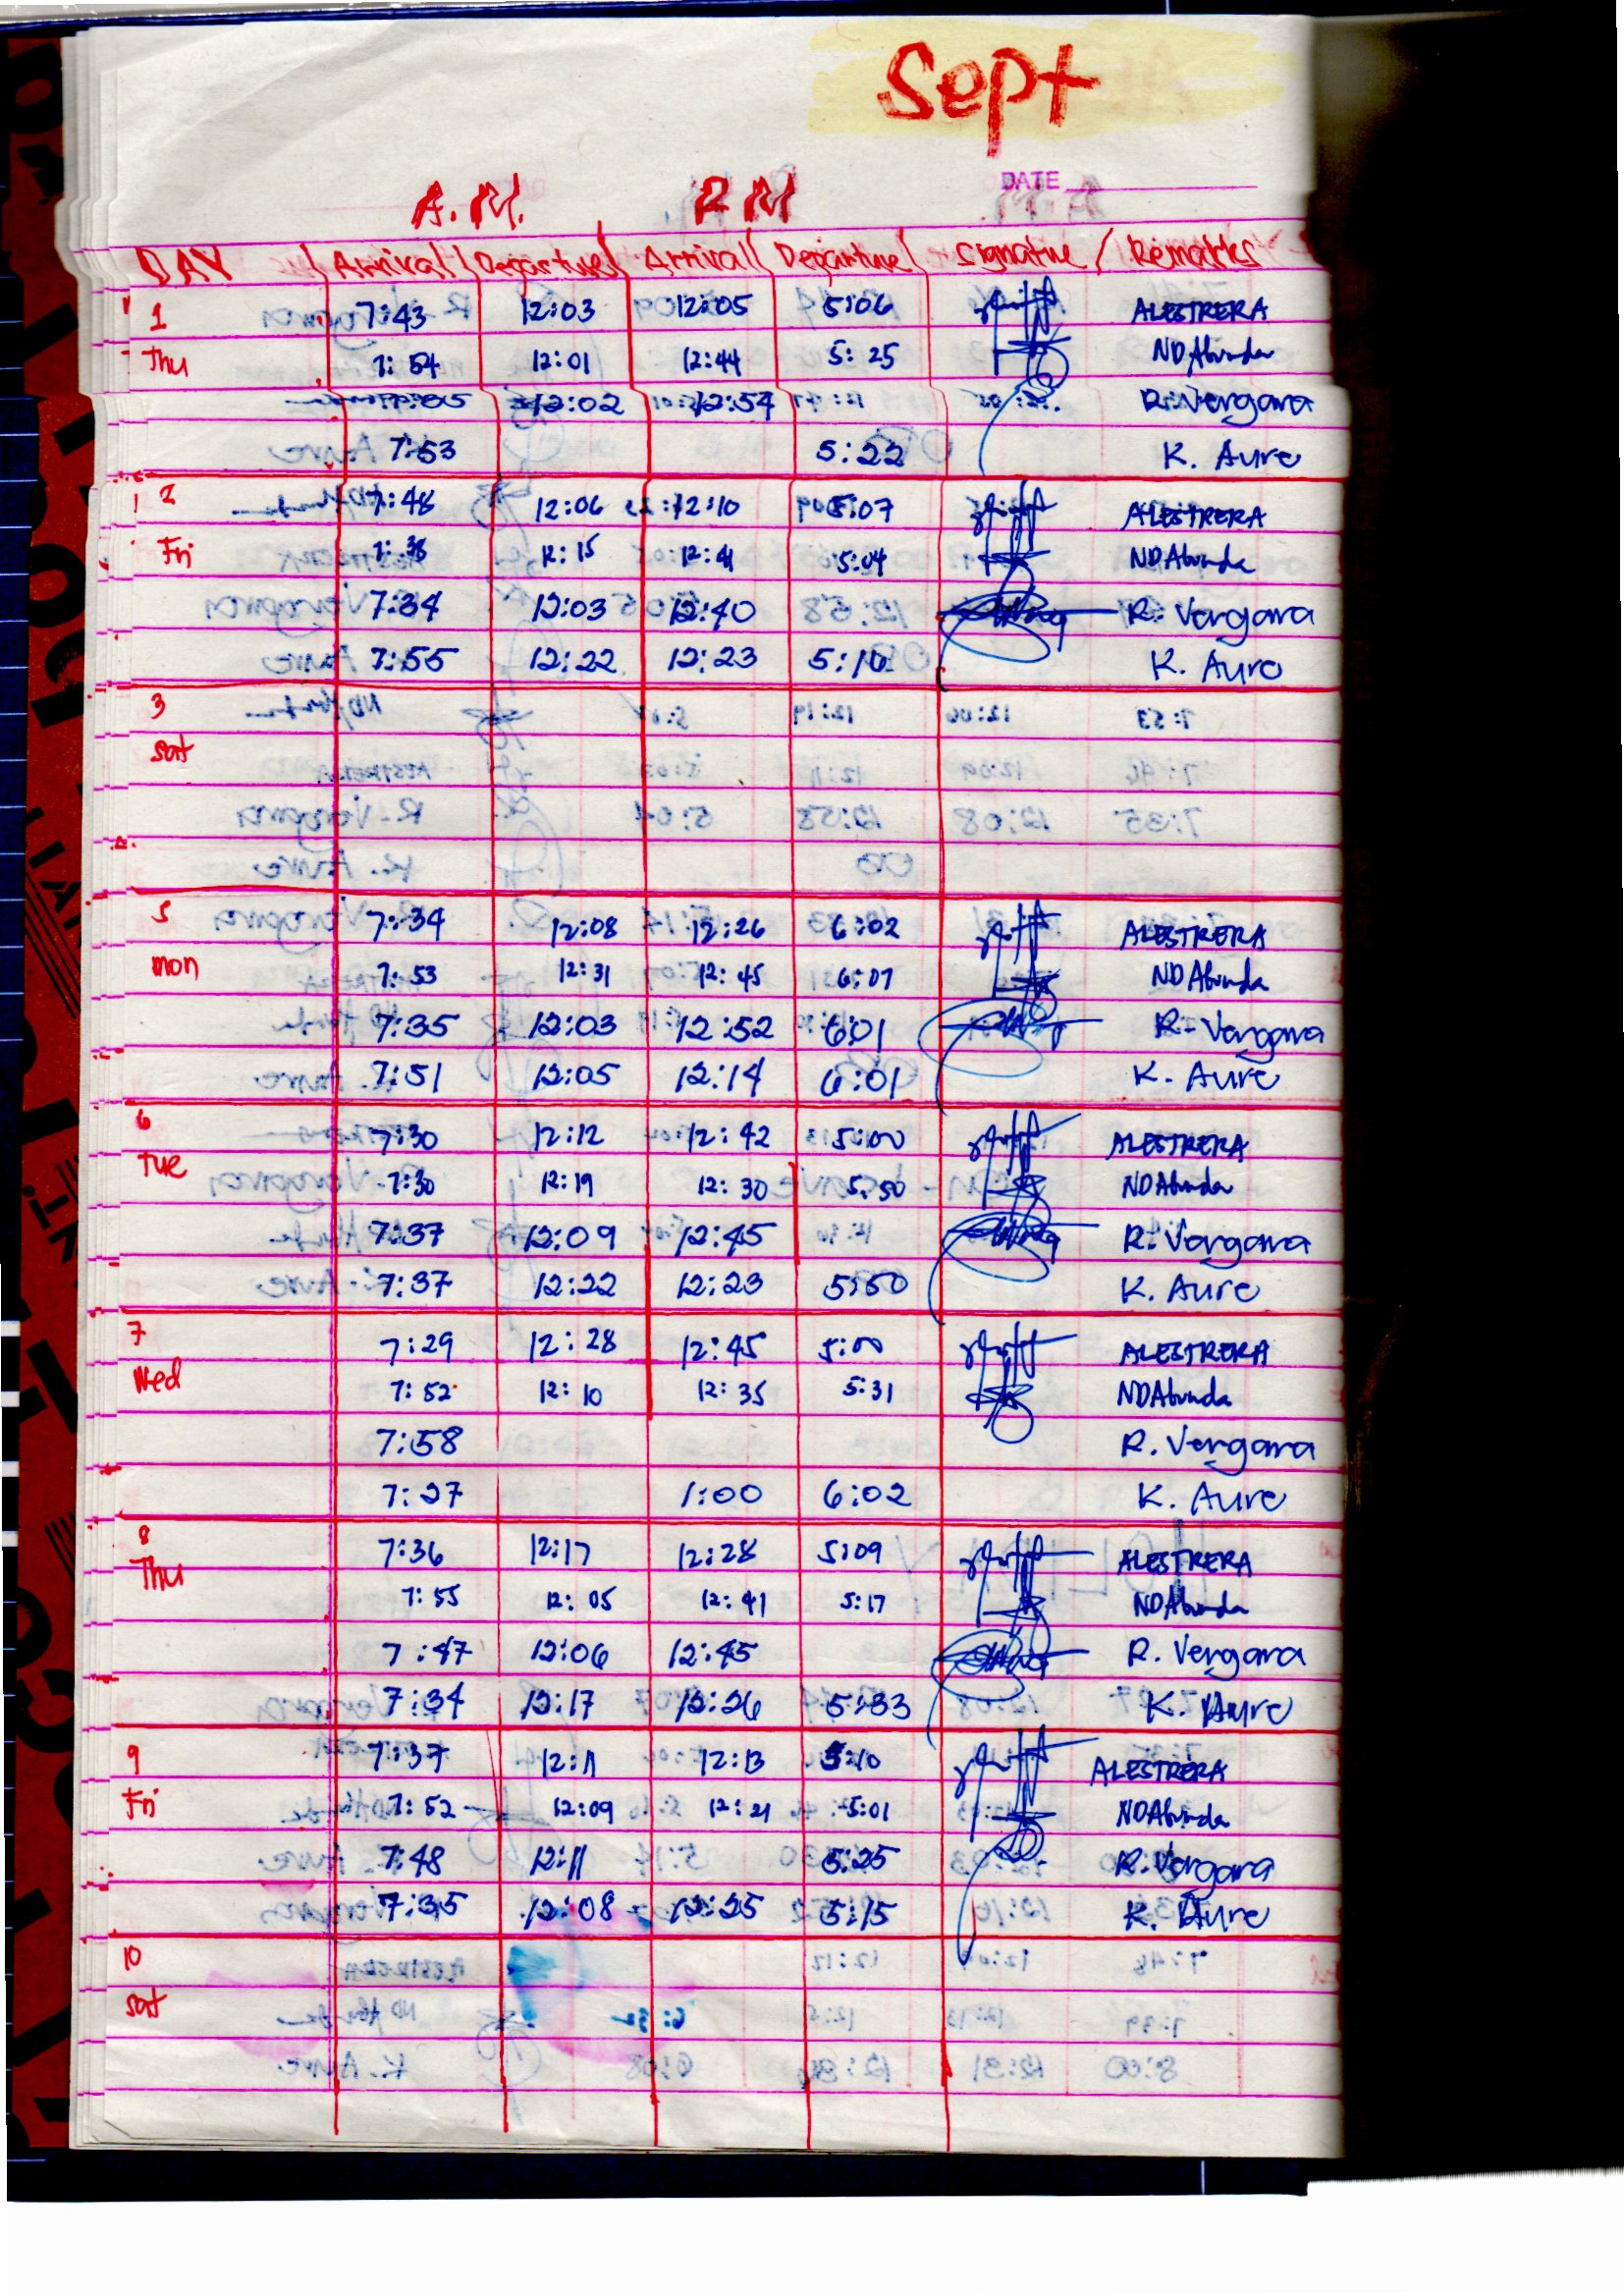 Sept
DATE
A.M. P.M
DAY Arrival Departure Arrival Departure Signature / Remarks
1 7:43 12:03 12:05 5:06 ALESTRERA
Thu 7:54 12:01 12:44 5:25 NDAbunda
7:05 12:02 12:54 R. Vergara
7:53 5:22 K. Aure
2 7:48 12:06 12:10 5:07 ALESTRERA
Fri 7:38 12:15 12:41 5:04 NDAbunda
7:34 12:03 12:40 R. Vergara
7:55 12:22 12:23 5:16 K. Aure
3
Sat
5 7:34 12:08 12:26 6:02 ALESTRERA
mon 7:53 12:31 12:45 6:07 NDAbunda
7:35 12:03 12:52 6:01 R. Vergara
7:51 12:05 12:14 6:01 K. Aure
6 7:30 12:12 12:42 5:00 ALESTRERA
Tue 7:30 12:19 12:30 5:50 NDAbunda
7:37 12:09 12:45 R. Vergara
7:37 12:22 12:23 5:50 K. Aure
7 7:29 12:28 12:45 5:00 ALESTRERA
Wed 7:52 12:10 12:35 5:31 NDAbunda
7:58 R. Vergara
7:27 1:00 6:02 K. Aure
8 7:36 12:17 12:28 5:09 ALESTRERA
Thu 7:55 12:05 12:41 5:17 NDAbunda
7:47 12:06 12:45 R. Vergara
7:34 12:17 12:26 5:33 K. Aure
9 7:37 12:11 12:13 5:10 ALESTRERA
Fri 7:52 12:09 12:21 5:01 NDAbunda
7:48 12:11 5:25 R. Vergara
7:35 12:08 12:25 5:15 K. Aure
10
Sat